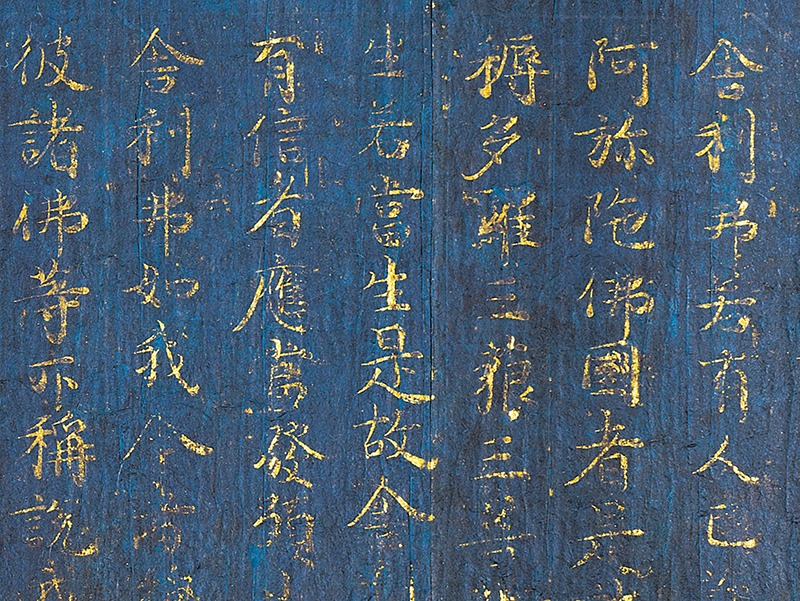 舍利弗若有人已
阿弥陀佛國者是
耨多羅三藐三菩
生若當生是故舍
有信者應當發願
舍利弗如我今者
彼諸佛等亦稱說